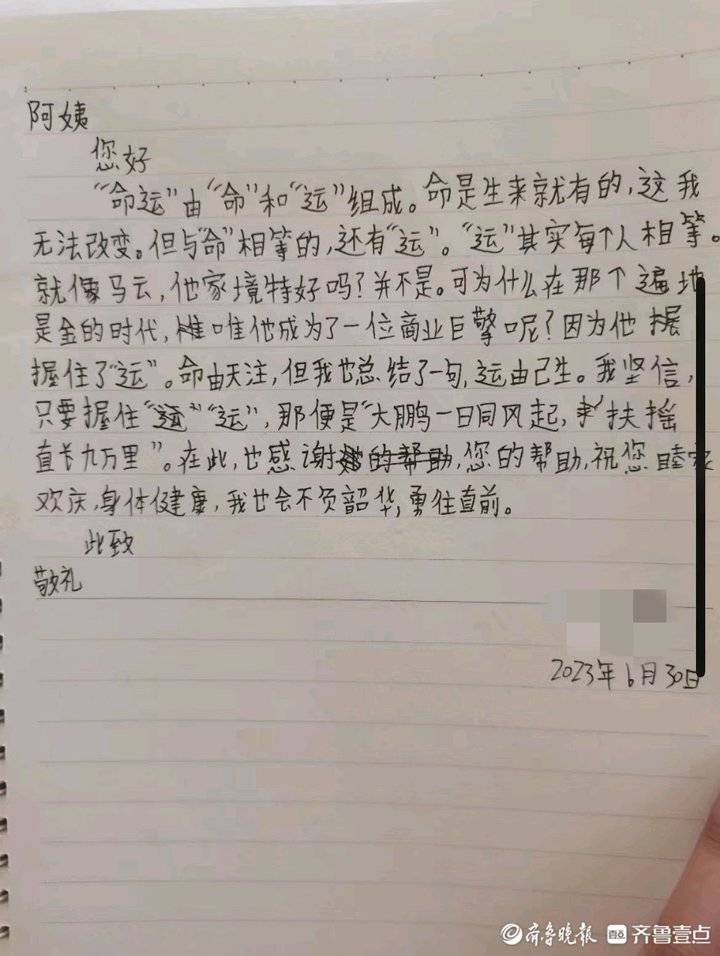 阿姨
您好
“命运”由“命”和“运”组成。命是生来就有的，这我
无法改变。但与“命”相等的，还有“运”。“运”其实每个人相等。
就像马云，他家境特好吗？并不是。可为什么在那个遍地
是金的时代，惟唯他成为了一位商业巨擎呢？因为他握
握住了“运”。命由天注，但我也总结了一句，运由己生。我坚信，
只要握住“运”“运”，那便是“大鹏一日同风起，扶摇
直长九万里”。在此，也感谢您的帮助，您的帮助，祝您睦家
欢庆，身体健康，我也会不负韶华，勇往直前。
此致
敬礼
2023年6月30日
齐鲁晚报 齐鲁壹点